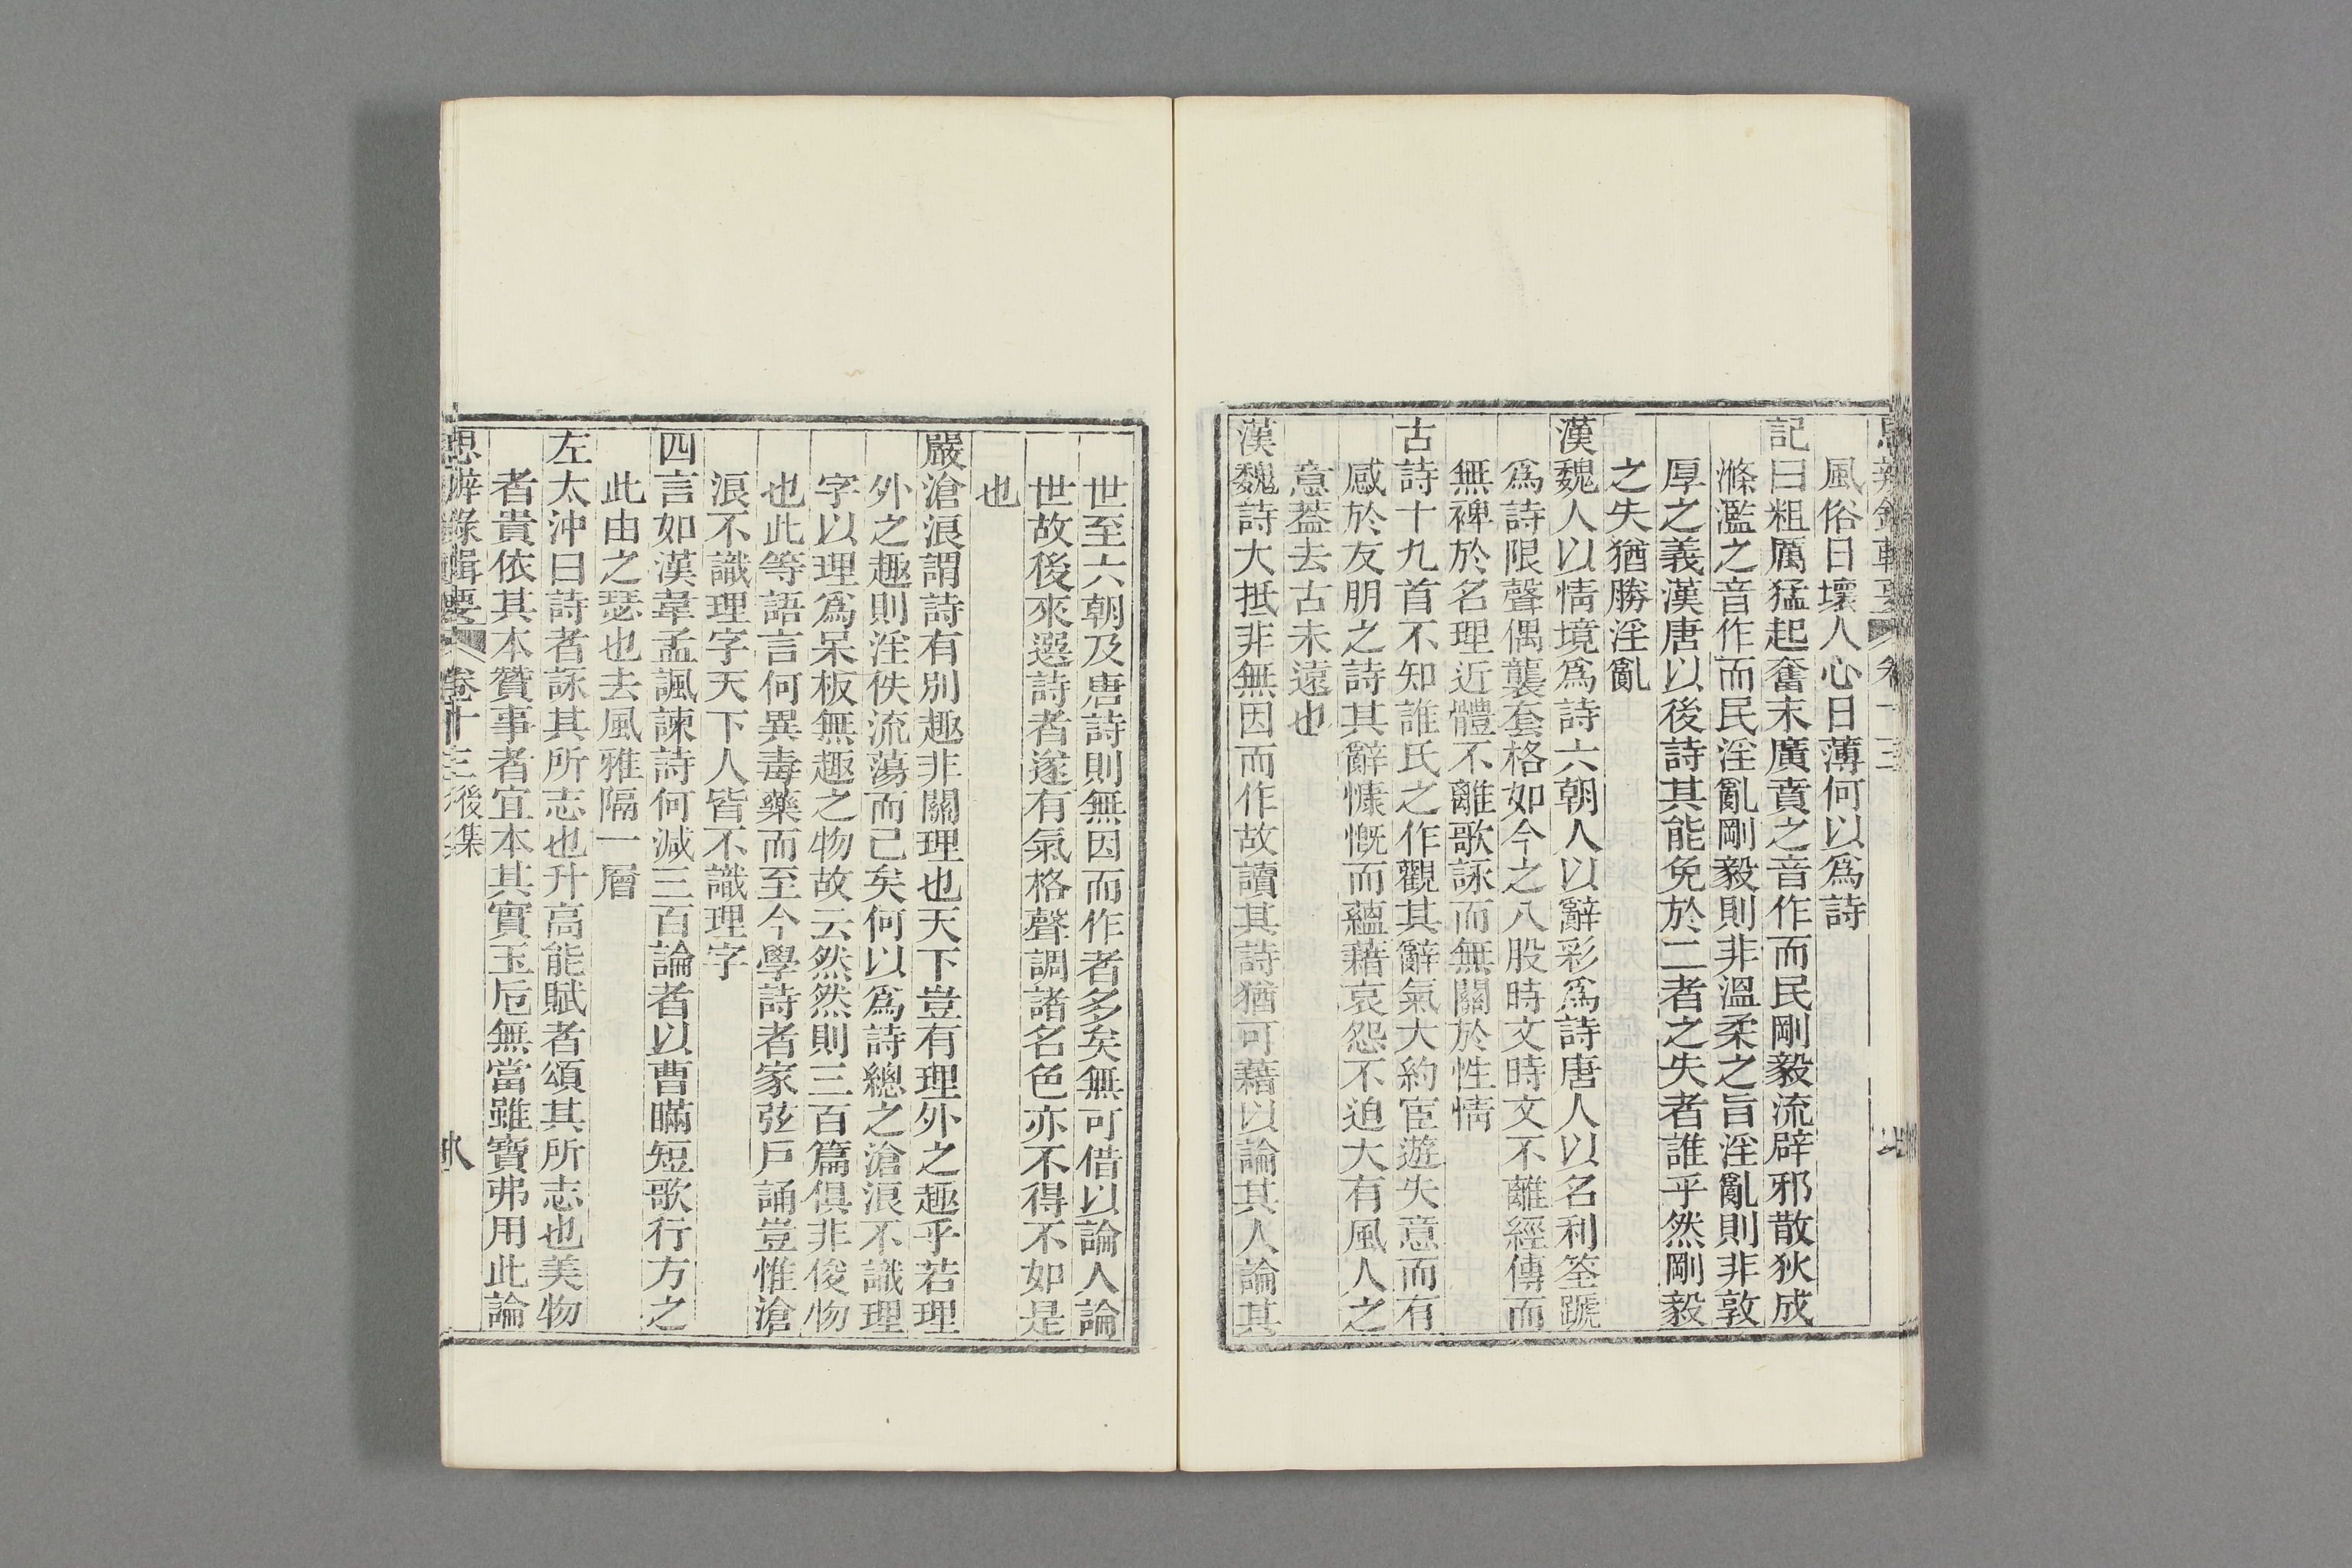 風俗日壞人心日薄何以爲詩
記曰粗厲猛起奮末廣賁之音作而民剛毅流辟邪散狄成
滌濫之音作而民淫亂剛毅則非溫柔之旨淫亂則非敦
厚之義漢唐以後詩其能免於二者之失者誰乎然剛毅
之失猶勝淫亂
漢魏人以情境爲詩六朝人以辭彩爲詩唐人以名利筌蹏
爲詩限聲偶襲套格如今之八股時文時文不離經傳而
無裨於名理近體不離歌詠而無關於性情
古詩十九首不知誰氏之作觀其辭氣大約宦遊失意而有
感於友朋之詩其辭慷慨而蘊藉哀怨不迫大有風人之
意葢去古未遠也
漢魏詩大抵非無因而作故讀其詩猶可藉以論其人論其
世至六朝及唐詩則無因而作者多矣無可借以論人論
世故後來選詩者遂有氣格聲調諸名色亦不得不如是
也
嚴滄浪謂詩有別趣非關理也天下豈有理外之趣乎若理
外之趣則淫佚流蕩而已矣何以爲詩總之滄浪不識理
字以理爲呆板無趣之物故云然然則三百篇俱非俊物
也此等語言何異毒藥而至今學詩者家弦戶誦豈惟滄
浪不識理字天下人皆不識理字
四言如漢韋孟諷諫詩何減三百論者以曹瞞短歌行方之
此由之瑟也去風雅隔一層
左太沖曰詩者詠其所志也升高能賦者頌其所志也美物
者貴依其本贊事者宜本其實玉卮無當雖寶弗用此論
思辨錄輯要 卷十三後集 八